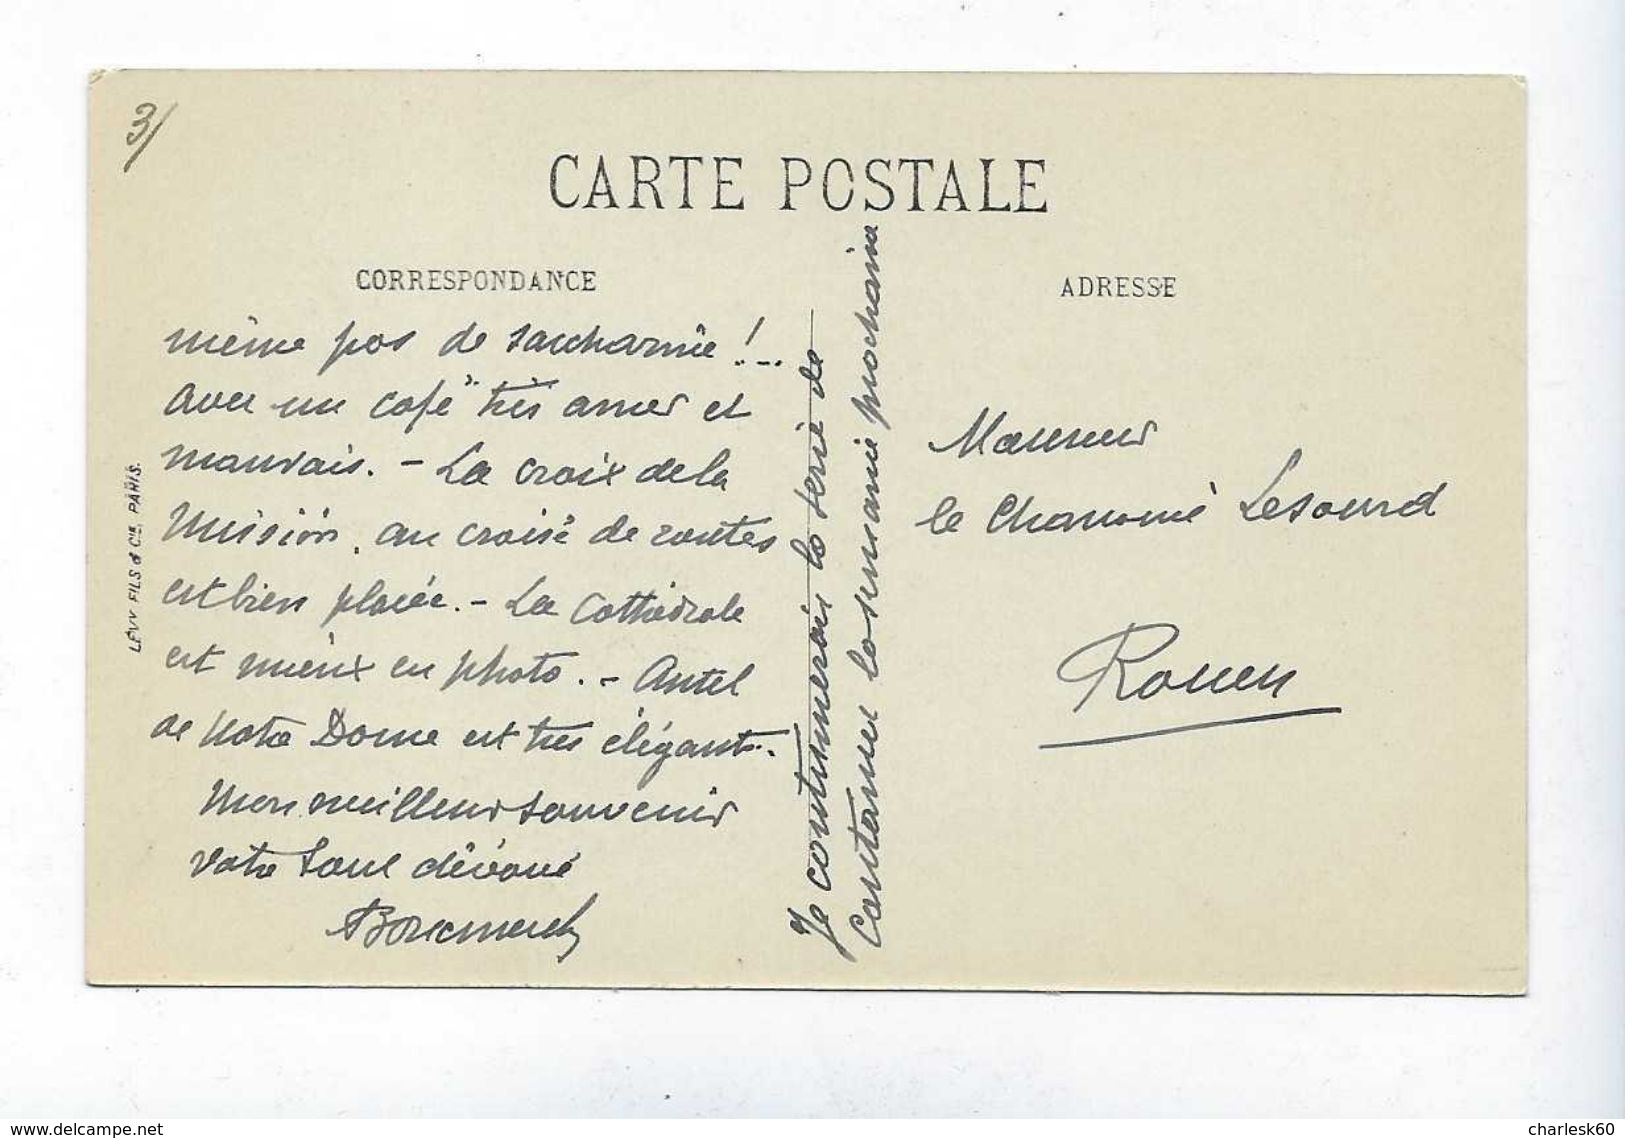 3/
CARTE POSTALE
CORRESPONDANCE
ADRESSE
même pas de saccharine !...
avec un café très amer et
mauvais. - La croix de la
Mission, au croisé de routes
est bien placée. - La Cathédrale
est mieux en photo. - Autel
de Notre Dame est très élégant.
Mon meilleur souvenir
votre tout dévoué
Je continuerai la série de
la semaine prochaine
Monsieur
le Chanoine Lesourd
Rouen
LÉVY FILS & Cie. PARIS.
www.delcampe.net
charlesk60